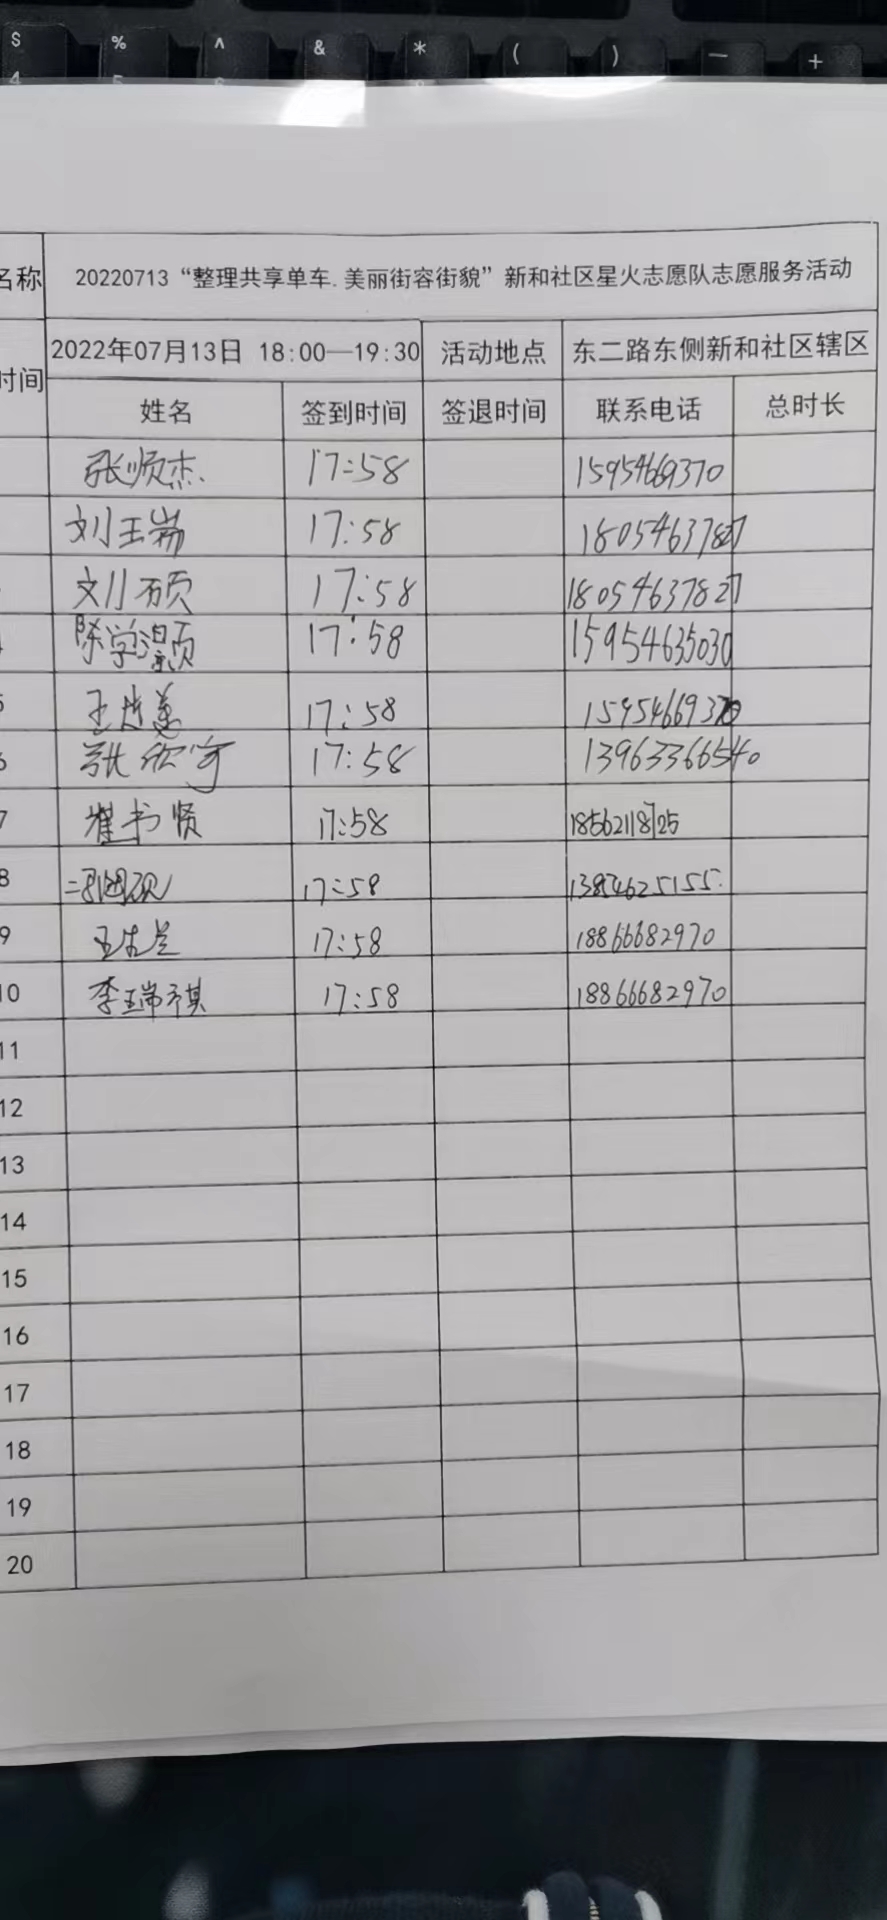 $ % ^ & * ( ) — +
4 5 6
名称 20220713“整理共享单车.美丽街容街貌”新和社区星火志愿队志愿服务活动
时间 2022年07月13日 18:00—19:30 活动地点 东二路东侧新和社区辖区
姓名 签到时间 签退时间 联系电话 总时长
张顺杰 17:58 15954669370
刘玉瑞 17:58 18054637827
刘硕 17:58 18054637827
陈学灏 17:58 15954635030
5 王 17:58 15954669370
6 张欣宇 17:58 13963366540
7 崔书贤 17:58 18562118725
8 17:58 13854625155
9 王 17:58 18866682970
10 李瑞祺 17:58 18866682970
11
12
13
14
15
16
17
18
19
20